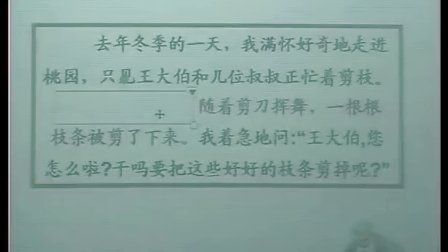 去年冬季的一天，我满怀好奇地走进
桃园，只见王大伯和几位叔叔正忙着剪枝。
随着剪刀挥舞，一根根
枝条被剪了下来。我着急地问：“王大伯，您
怎么啦？干吗要把这些好好的枝条剪掉呢？”